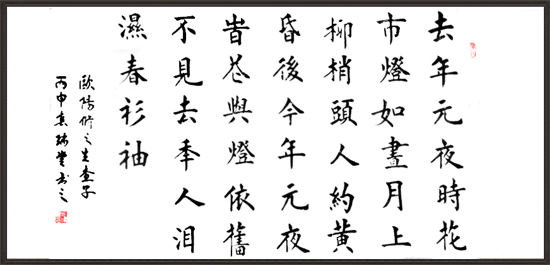 去年元夜時花
市燈如晝月上
柳梢頭人約黃
昏後今年元夜
旹花與燈依舊
不見去秊人泪
濕春衫袖
歐陽修之生查子
丙申書之